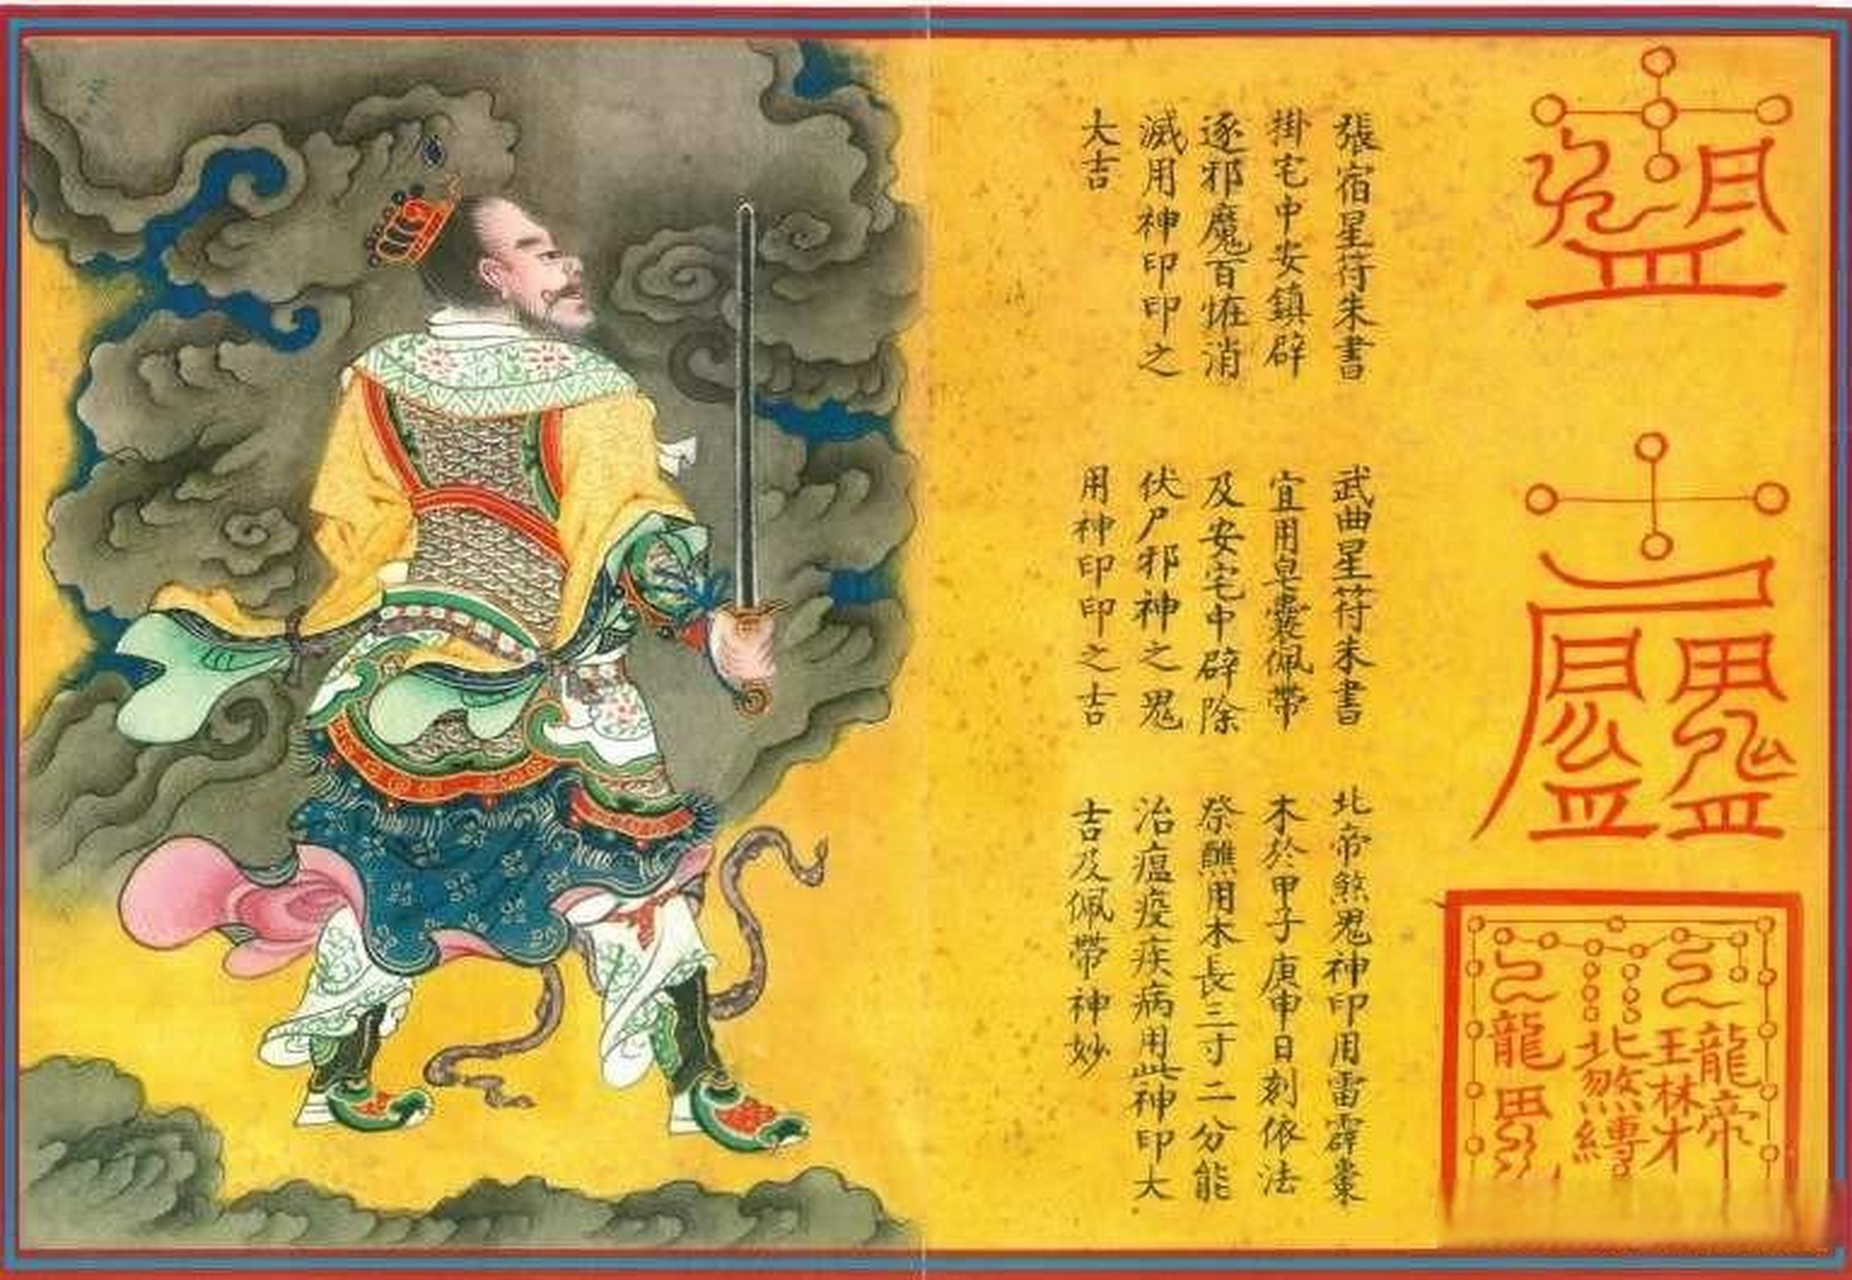 張宿星符朱書
掛宅中安鎮辟
逐邪魔百恠消
滅用神印印之
大吉
武曲星符朱書
宜用皂囊佩帶
及安宅中辟除
伏尸邪神之鬼
用神印印之吉
北帝煞鬼神印用雷霹棗
木於甲子庚申日刻依法
祭醮用木長三寸二分能
治瘟疫疾病用此神印大
吉及佩帶神妙
龍帝
王林才
北煞
龍